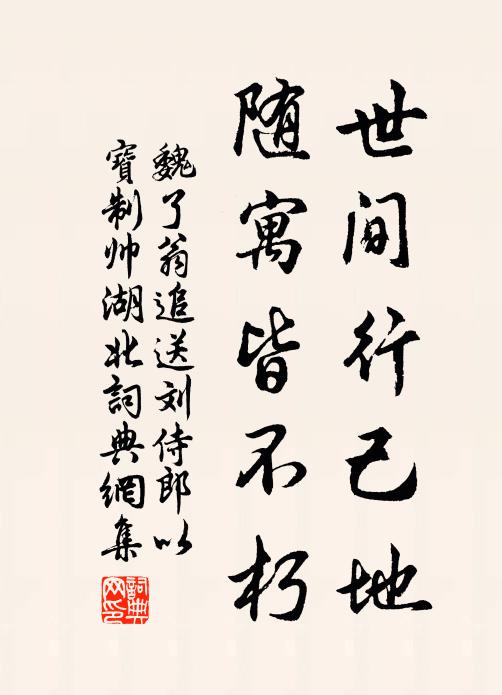 世间行己地
随寓皆不朽
魏了翁追送刘侍郎以
寶制帅湖北詞典網集
詞典网印